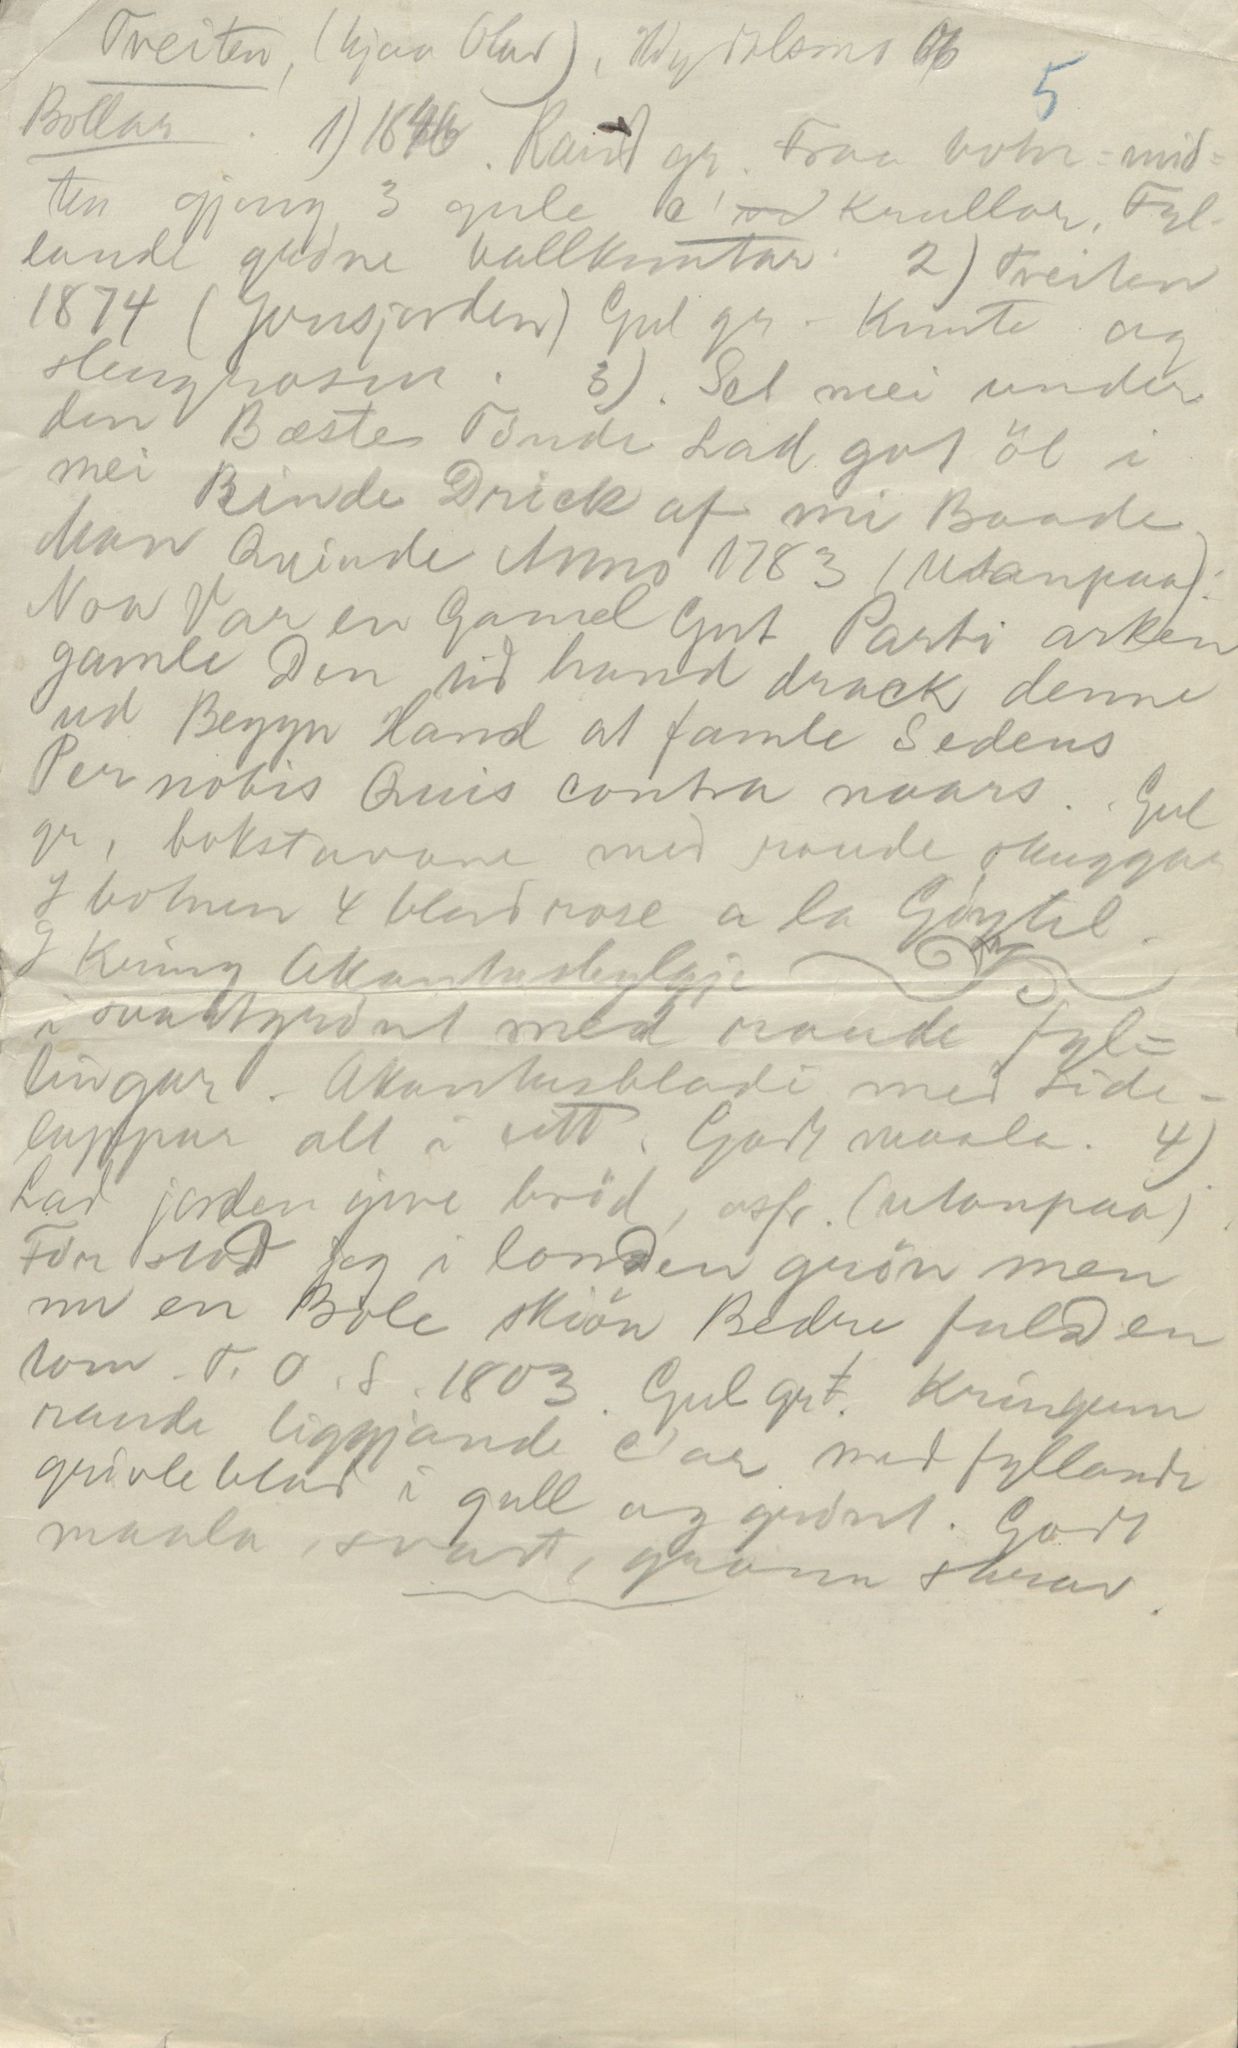 Treiten, (hjaa Olav), Höydalsmo
5
Bollar. 1) 1846. Raud gr. Fraa botn-mid=
ten gjeng 3 gule c' krullar, Fyl-
lande gröne kallkvintar. 2) Treiten
1874 (Jonsjorden) Gul gr - Kvinte og
slengrosur. 3). Set mei under
den Bæste Tönde Lad got öl i
mei Rinde Drick af mi Baade
Man Qvinde Anno 1783 (Utanpaa):
Noa Var en Gamel Gut Parti arken
gamle Den tid hand drack denne
ud Begyn Hand at famle Sedens
Per nobis Quis contra noars. Gul
gr, bokstavane med raude skuggar
I botnen 4 bladrose a la Göytil.
I Kring Akantusbylgje
i svartgrönt med raude fyl=
lingar. Akantusbladi med Side-
lappar alt i ett. Godt maala. 4)
Lad jorden give bröd, osfr. (utanpaa)
För stod jeg i londen grön men
nu en Bole skiön Bedre fuld en
tom. T. O. S. 1803. Gul grt. Kringum
raude liggjande c'ar med fyllande
grivleblad i gull og grönt. Godt
maala, svart, grann skrav.